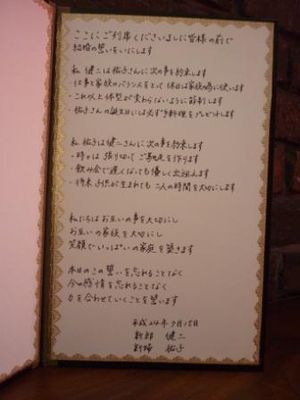 ここにご列席くださいました皆様の前で
結婚の誓いをいたします
私 健二は祐子さんに次の事を約束します
・仕事と家族のバランスをとって 休日は家族の為に使います
・これ以上体型が変わらないように節制します
・祐子さんの誕生日には必ず手料理をプレゼントします
私 祐子は健二さんに次の事を約束します
・時々は 張り切って ご馳走を作ります
・飲み会で遅くなっても優しく出迎えます
・将来子供が生まれても 二人の時間を大切にします
私たちはお互いの事を大切にし
お互いの家族を大切にし
笑顔でいっぱいの家庭を築きます
本日のこの誓いを忘れることなく
今の感情を忘れることなく
力を合わせていくことを誓います
平成24年
新郎 健二
新婦 祐子